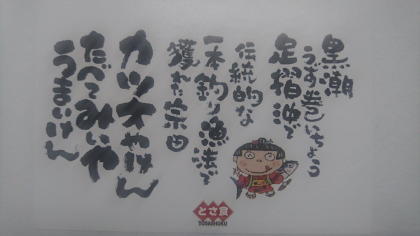 黒潮
うず巻いちょう
足摺沖で
伝統的な
一本釣り漁法で
獲れた宗田
カツオやけん
たべてみいや
うまいけん
とさ食
TOSASHOKU